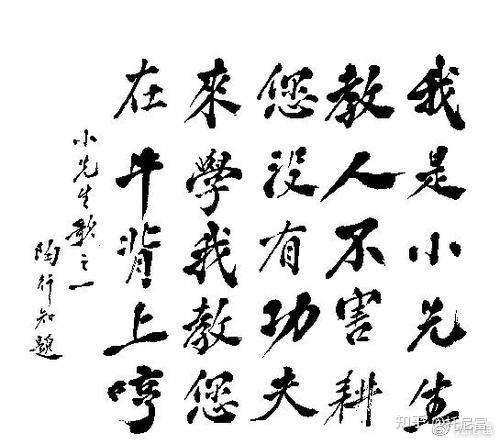 我是小先生
教人不害耕
您没有功夫
來學我教您
在牛背上哼
小先生歌之一
陶行知題
知乎 @托尼富